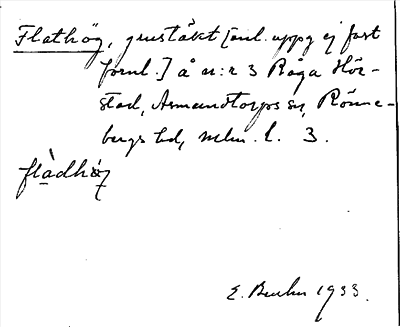 Flathög, grustäkt [enl. uppg ej fast
fornl.] å n:r 3 Råga Hör-
stad, Asmundtorps sn, Rönne-
bergs hd, Mlm. l. 3.
flàdhög
E. Buhr 1933.